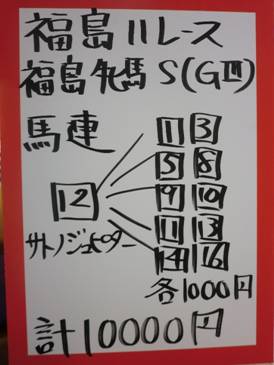 福島11レース
福島牝馬S(GⅢ)
馬連
12
サトノジュピター
1 3
5 8
9 10
11 13
14 16
各1000円
計10000円